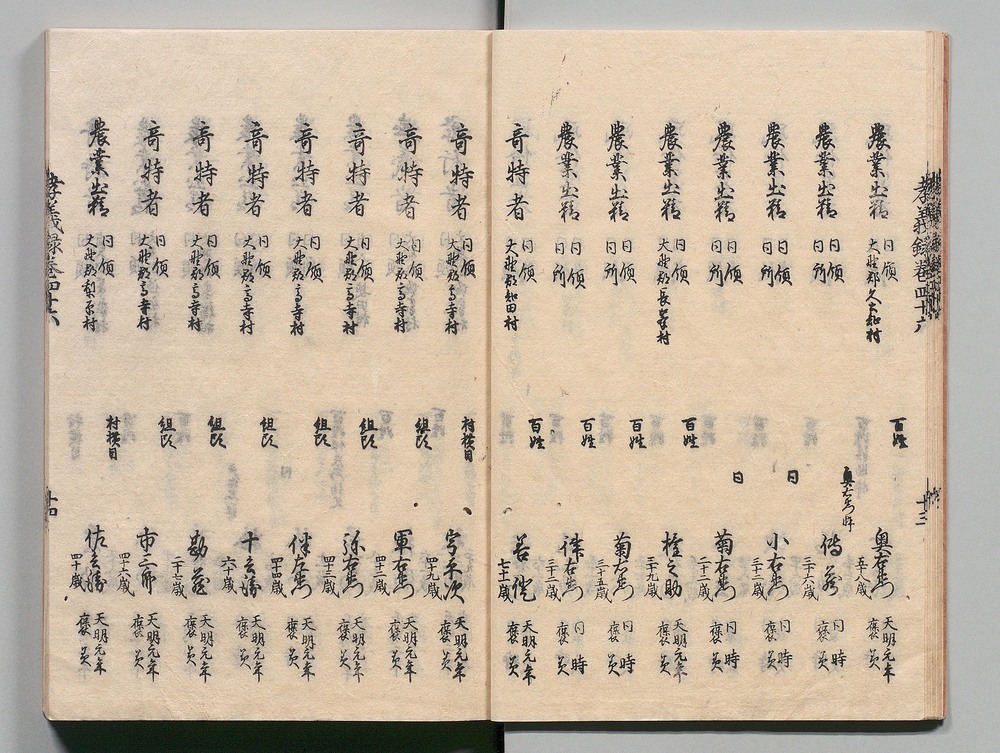 孝義録巻四十六 十三
農業出精 同領 大野郡久 村 百姓 奥右衛門 五十八歳 天明元年 褒美
農業出精 同領 同所 奥右衛門忰 傳蔵 三十六歳 同時 褒美
農業出精 同領 同所 同 小右衛門 三十三歳 同時 褒美
農業出精 同領 同所 同 菊右衛門 二十二歳 同時 褒美
農業出精 同領 大野郡長峯村 百姓 之助 三十九歳 天明元年 褒美
農業出精 同領 同所 百姓 菊右衛門 三十五歳 同時 褒美
農業出精 同領 同所 百姓 律右衛門 三十二歳 同時 褒美
奇特者 同領 大野郡知田村 百姓 七十一歳 天明元年 褒美
奇特者 同領 大野郡高寺村 村横目 宇平次 四十九歳 天明元年 褒美
奇特者 同領 大野郡高寺村 組頭 軍右衛門 四十二歳 天明元年 褒美
奇特者 同領 大野郡高寺村 組頭 弥右衛門 四十三歳 天明元年 褒美
奇特者 同領 大野郡高寺村 組頭 伴左衛門 四十四歳 天明元年 褒美
奇特者 同領 大野郡高寺村 組頭 十兵衛 六十歳 天明元年 褒美
奇特者 同領 大野郡高寺村 組頭 勘蔵 二十七歳 天明元年 褒美
奇特者 同領 大野郡高寺村 組頭 市三郎 四十六歳 天明元年 褒美
農業出精 同領 大野郡梨原村 村横目 佐兵衛 四十歳 天明元年 褒美
孝義録巻四十六 十四